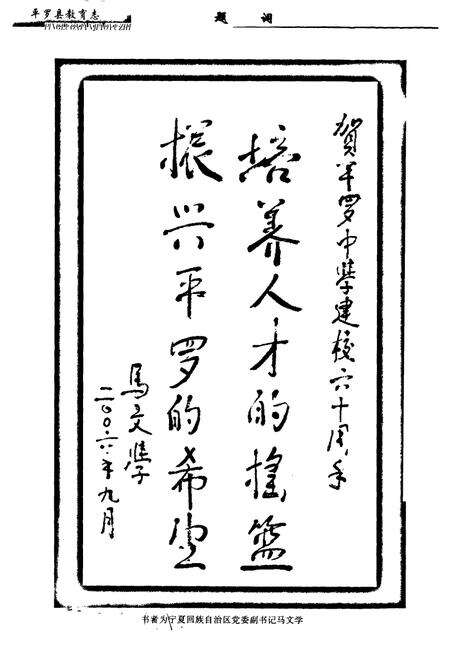 平罗县教育志
题 词
贺平罗中学建校六十周年
培养人才的摇篮
振兴平罗的希望
马文学
二〇〇六年九月
书者为宁夏回族自治区党委副书记马文学